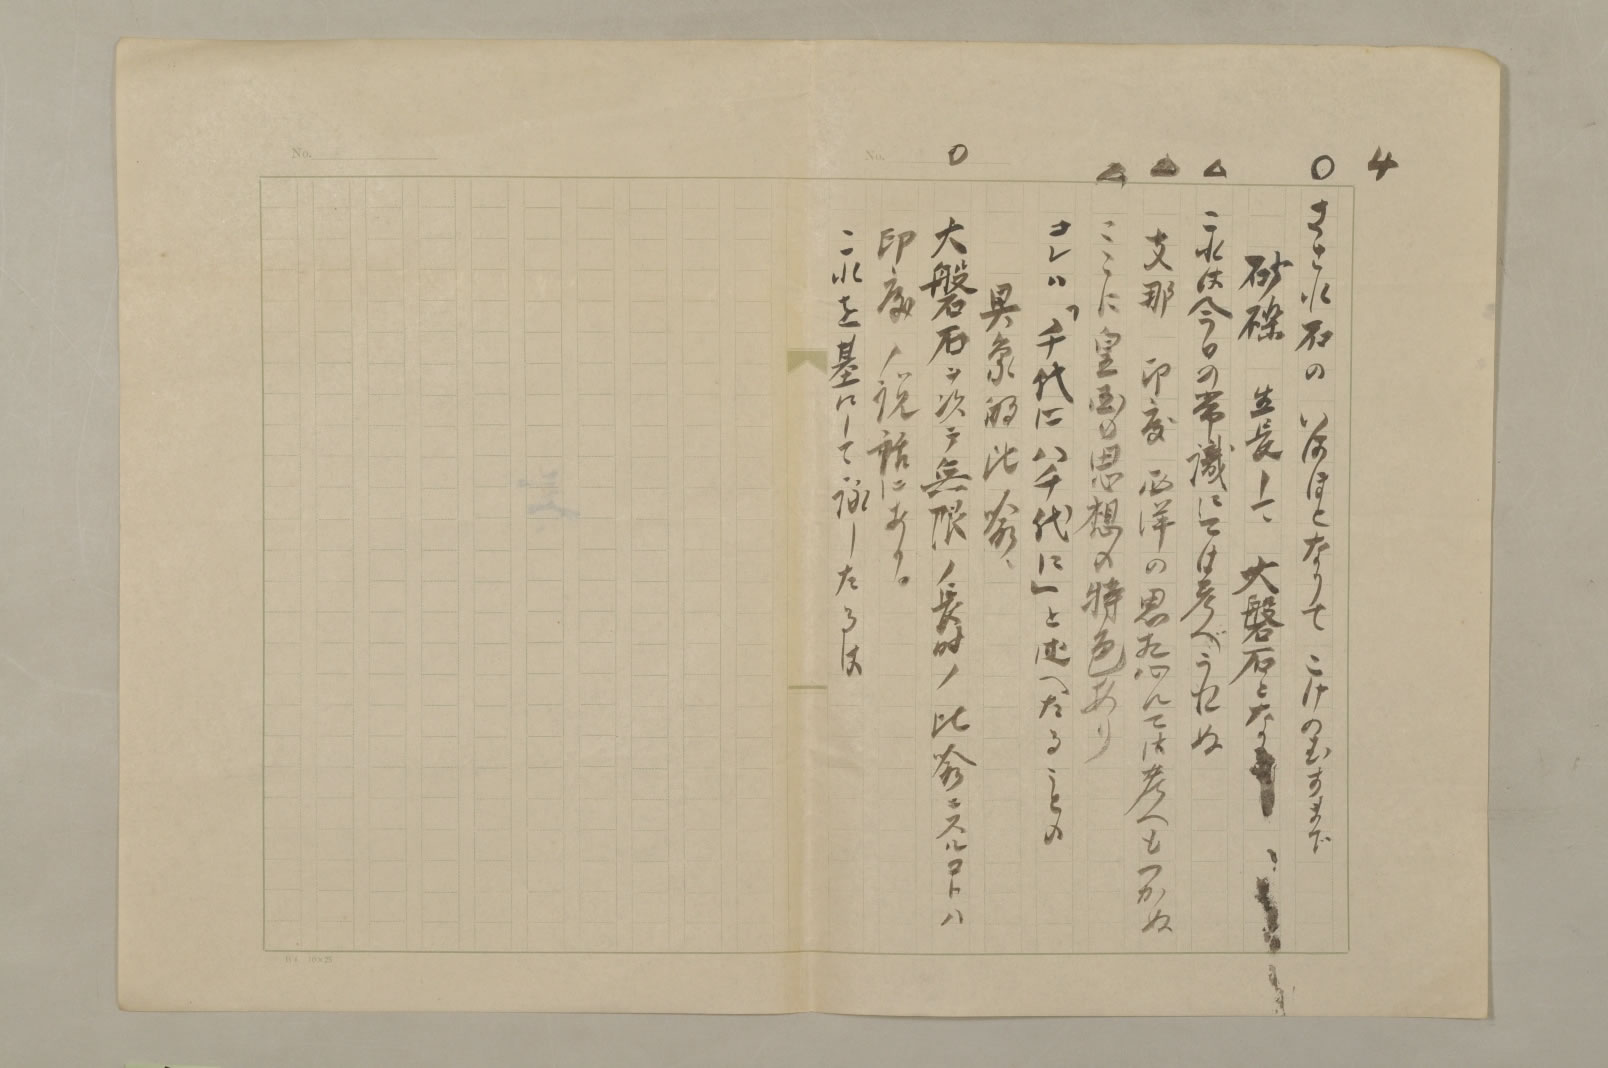 4
○ さされ石の いはほとなりて こけのむすまで
砂礫 生長して 大盤石となる
△ これは今日の常識にては考へられぬ
▲ 支那 印度 西洋の思想にては考へもつかぬ
△ ここに皇国の思想の特色あり
コレハ「千代に八千代に」と述べたることの
具象的比喩、
○ 大盤石ヲ以テ無限ノ長時ノ比喩ニスルコトハ
印度ノ説話にあり。
これを基にして詠したるは
No.
No.
B4 10×25